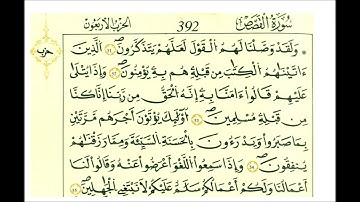 الحزب الأربعون 392 سورة القصص
حزب
۞ وَلَقَدْ وَصَّلْنَا لَهُمُ الْقَوْلَ لَعَلَّهُمْ يَتَذَكَّرُونَ ۝٥١ الَّذِينَ
ءَاتَيْنَٰهُمُ الْكِتَٰبَ مِن قَبْلِهِ هُم بِهِ يُؤْمِنُونَ ۝٥٢ وَإِذَا يُتْلَىٰ
عَلَيْهِمْ قَالُوا ءَامَنَّا بِهِ إِنَّهُ الْحَقُّ مِن رَّبِّنَا إِنَّا كُنَّا
مِن قَبْلِهِ مُسْلِمِينَ ۝٥٣ أُوْلَٰئِكَ يُؤْتَوْنَ أَجْرَهُم مَّرَّتَيْنِ
بِمَا صَبَرُوا وَيَدْرَءُونَ بِالْحَسَنَةِ السَّيِّئَةَ وَمِمَّا رَزَقْنَٰهُمْ
يُنفِقُونَ ۝٥٤ وَإِذَا سَمِعُوا اللَّغْوَ أَعْرَضُوا عَنْهُ وَقَالُوا لَنَا
أَعْمَٰلُنَا وَلَكُمْ أَعْمَٰلُكُمْ سَلَٰمٌ عَلَيْكُمْ لَا نَبْتَغِي الْجَٰهِلِينَ ۝٥٥